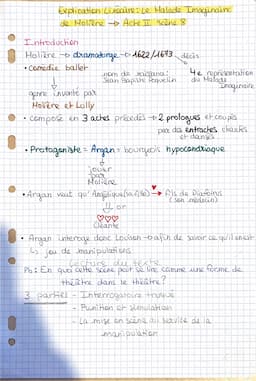 Explication Linéaire : Le Malade Imaginaire
de Molière → Acte II scène 8
Introduction
Molière → dramaturge → 1622/1673 → décès
• Comédie ballet
nom de naissance : Jean Baptiste Poquelin
4e représentation du Malade Imaginaire
genre inventé par
Molière et Lully
• composé en 3 actes précédés → 2 prologues et coupés
par des entractes chantés
et dansés
• Protagoniste = Argan = bourgeois hypocondriaque
jouer
par
Molière
• Argan veut qu'Angélique (sa fille) → fils de Diafoirus
(son médecin)
or
Cléante
• Argan interroge donc Louison → afin de savoir ce qu'il en est
↳ jeu de manipulations
Lecture du texte
Pb : En quoi cette scène peut se lire comme une forme de
théâtre dans le théâtre ?
3 parties - Interrogatoire
- Punition et simulation
- La mise en scène au service de la
manipulation